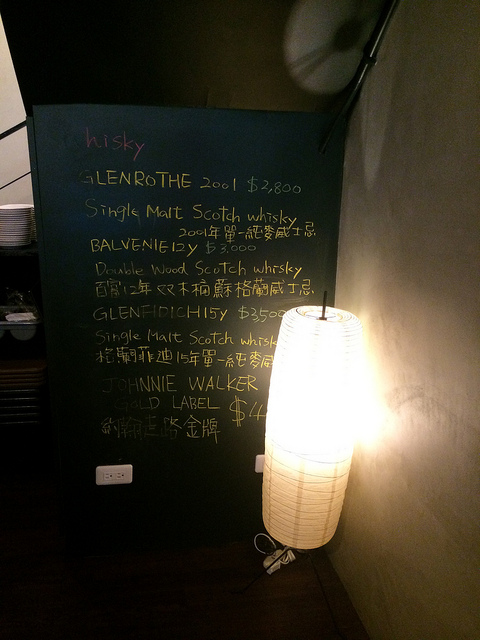 hisky
GLENROTHE 2001 $2,800
Single Malt Scotch whisky
2001年單一純麥威士忌
BALVENIE12y $3,000
Double Wood Scotch whisky
百富12年 双木桶蘇格蘭威士忌
GLENFIDICH15y $3,500
Single Malt Scotch whisk
格蘭菲迪15年單一純麥威
JOHNNIE WALKER
GOLD LABEL $4
約翰走路金牌